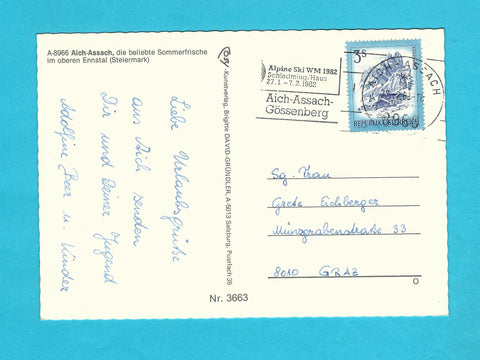 A-8966 Aich-Assach, die beliebte Sommerfrische
im oberen Ennstal (Steiermark)
Liebe Urlaubsgrüße
aus Aich senden
Dir und Deiner Jugend
Adolfine Beer u. Kinder
Cosy-Kunstverlag, Brigitte DAVID-GRÜNDLER, A-5013 Salzburg, Postfach 35
Nr. 3663
Alpine Ski WM 1982
Schladming/Haus
27.1. – 7.2.1982
Aich-Assach-
Gössenberg
3S
REPUBLIK
AICH-ASSACH
8966
Sg. Frau
Grete Eichberger
Münzgrabenstraße 33
8010 GRAZ